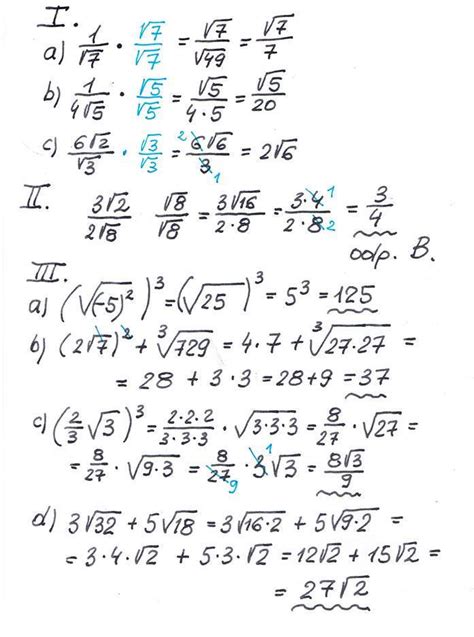 I.
a) 1/√7 · √7/√7 = √7/√49 = √7/7
b) 1/4√5 · √5/√5 = √5/4·5 = √5/20
c) 6√2/√3 · √3/√3 = 2 6√6/3 1 = 2√6
II. 3√2/2√8 √8/√8 = 3√16/2·8 = 3·4 1/2·8 2 = 3/4
B.
III.
a) (√(-5)²)³ = (√25)³ = 5³ = 125
b) (2√7)² + ³√729 = 4·7 + ³√27·27 =
= 28 + 3·3 = 28+9 = 37
c) (2/3 √3)³ = 2·2·2/3·3·3 · √3·3·3 = 8/27 · √27 =
= 8/27 · √9·3 = 8/27 9 · 3 1 √3 = 8√3/9
d) 3√32 + 5√18 = 3√16·2 + 5√9·2 =
= 3·4·√2 + 5·3·√2 = 12√2 + 15√2 =
= 27√2